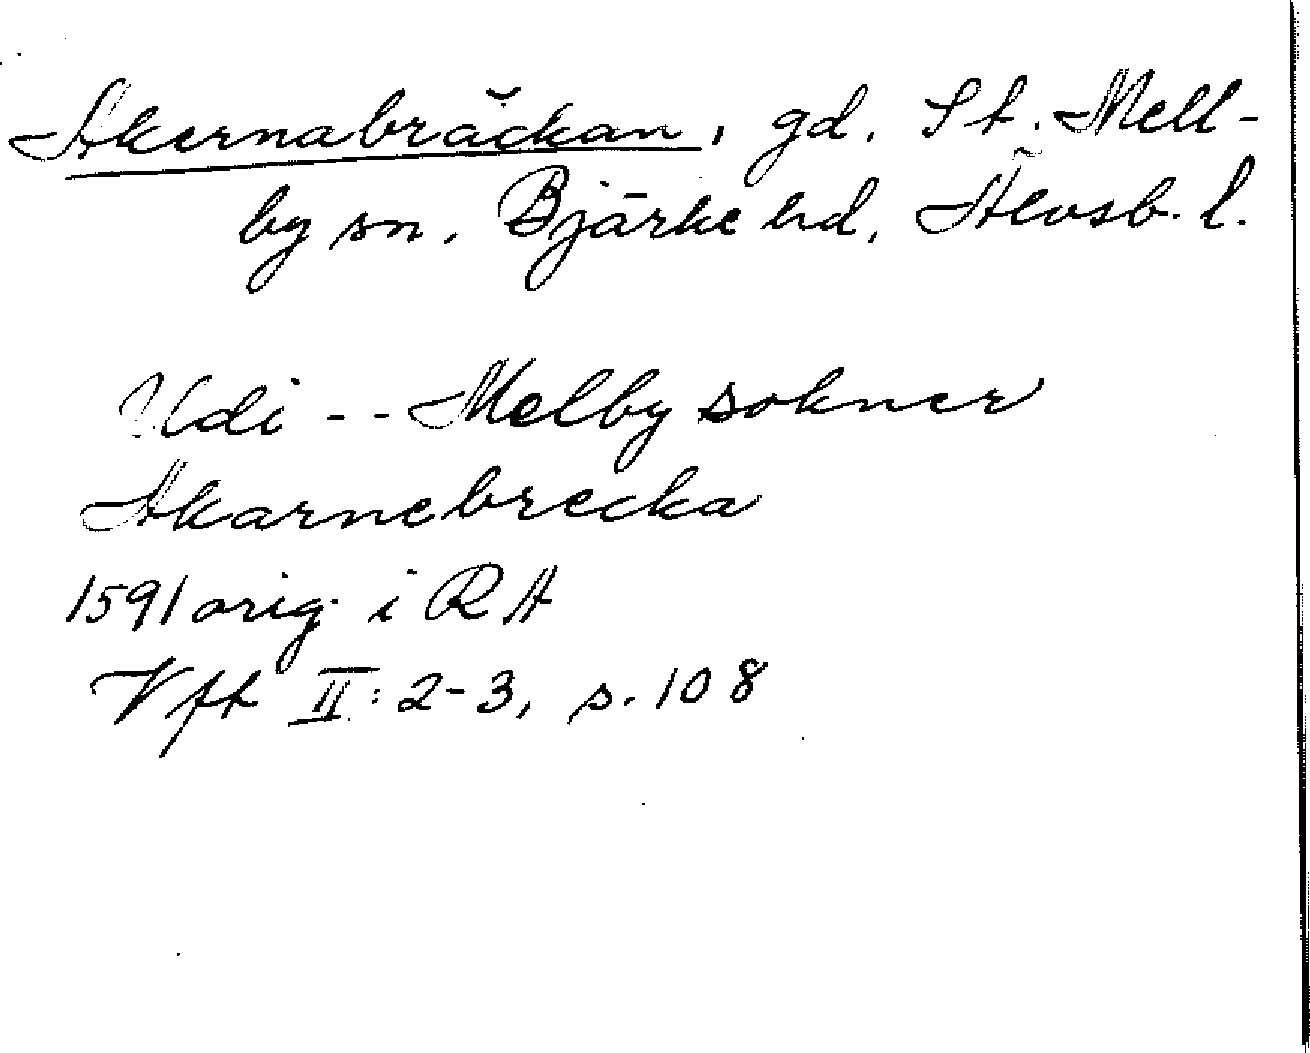 Akernabräckan, gd. St. Mell-
by sn, Bjärke hd, Älvsb. l.
Udi -- Melby sokner
Akarnebrecka
1591 orig. i RA
Vft II: 2-3, s. 108